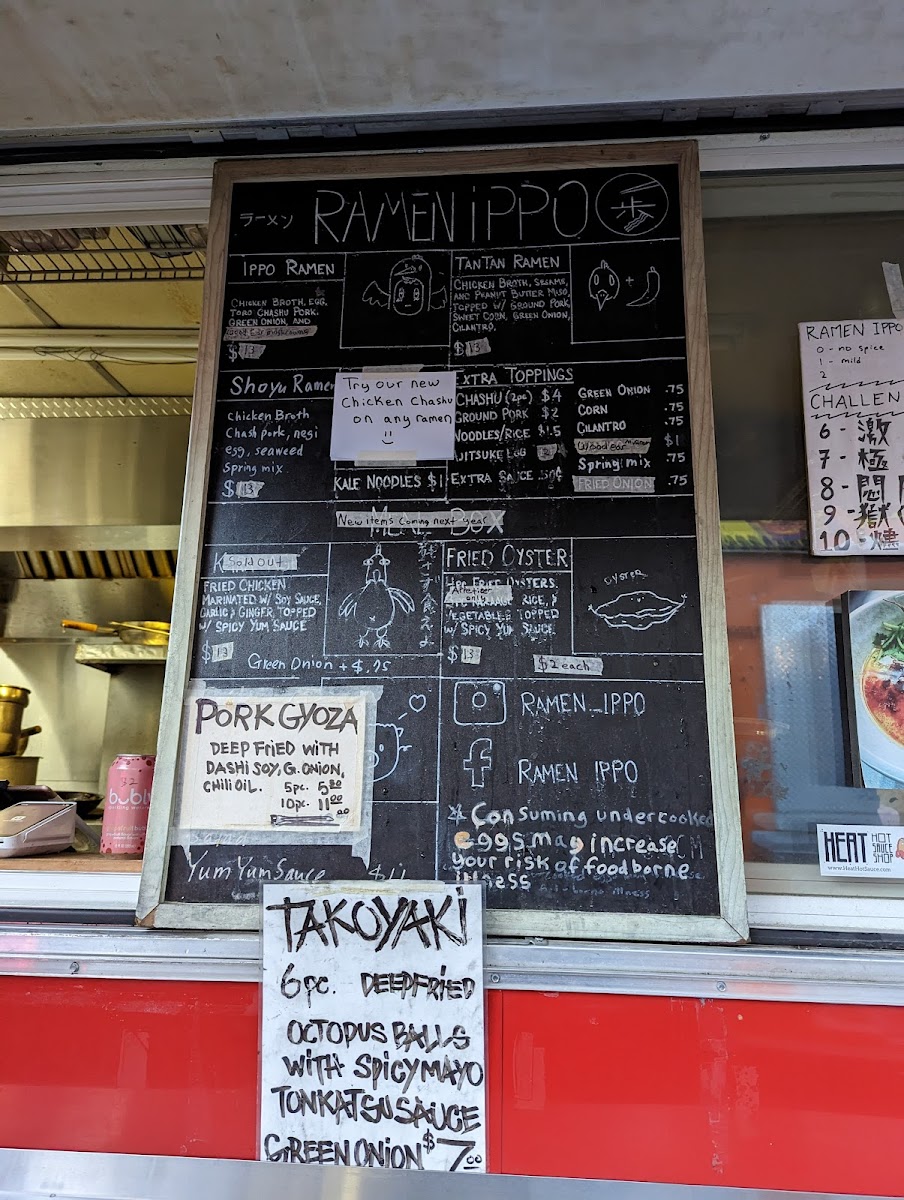 ラーメン RAMEN iPPO 歩
IPPO RAMEN
CHICKEN BROTH, EGG,
TORO CHASHU PORK,
GREEN ONION, AND
$13
TANTAN RAMEN
CHICKEN BROTH, SESAME,
AND PEANUT BUTTER MISO,
TOPPED W/ GROUND PORK,
SWEET CORN, GREEN ONION,
CILANTRO.
$13
Shoyu Ramen
Chicken Broth
Chash pork, negi
egg, seaweed
Spring mix.
$13
Try our new
Chicken Chashu
on any ramen
KALE NOODLES $1
EXTRA TOPPINGS
CHASHU (2pc) $4
GROUND PORK $2
NOODLES/RICE $1.5
AJITSUKE EGG 2
EXTRA SAUCE .50¢
GREEN ONION .75
CORN .75
CILANTRO .75
Wood ear $1
Spring mix .75
FRIED ONION .75
New items coming next year
BOX
Sold out
FRIED CHICKEN
MARINATED W/ SOY SAUCE,
GARLIC & GINGER, TOPPED
W/ SPICY YUM SAUCE
$13
Green Onion + $.75
FRIED OYSTER
FRIED OYSTERS
Appetizer
only
RICE, &
VEGETABLES TOPPED
W/ SPICY YUM SAUCE
$13
OYSTER
$2 each
PORK GYOZA
DEEP FRiED WiTH
DASHI SOY, G. ONION,
CHiLi OiL. 5pc. 5.00
10pc. 11.00
YumYumSauce
RAMEN_IPPO
RAMEN IPPO
* Consuming undercooked
eggs may increase
your risk of foodborne
illness
TAKOYAKi
6pc. DEEPFRiED
OCTOPUS BALLS
WiTH SPiCY MAYO
TONKATSU SAUCE
GREEN ONiON $7.00
RAMEN IPPO
0 - no spice
1 - mild
2
CHALLEN
6 - 激
7 - 極
8 -
9 - 獄
10 -
HEAT HOT
SAUCE
SHOP
www.HeatHotSauce.com
bubl